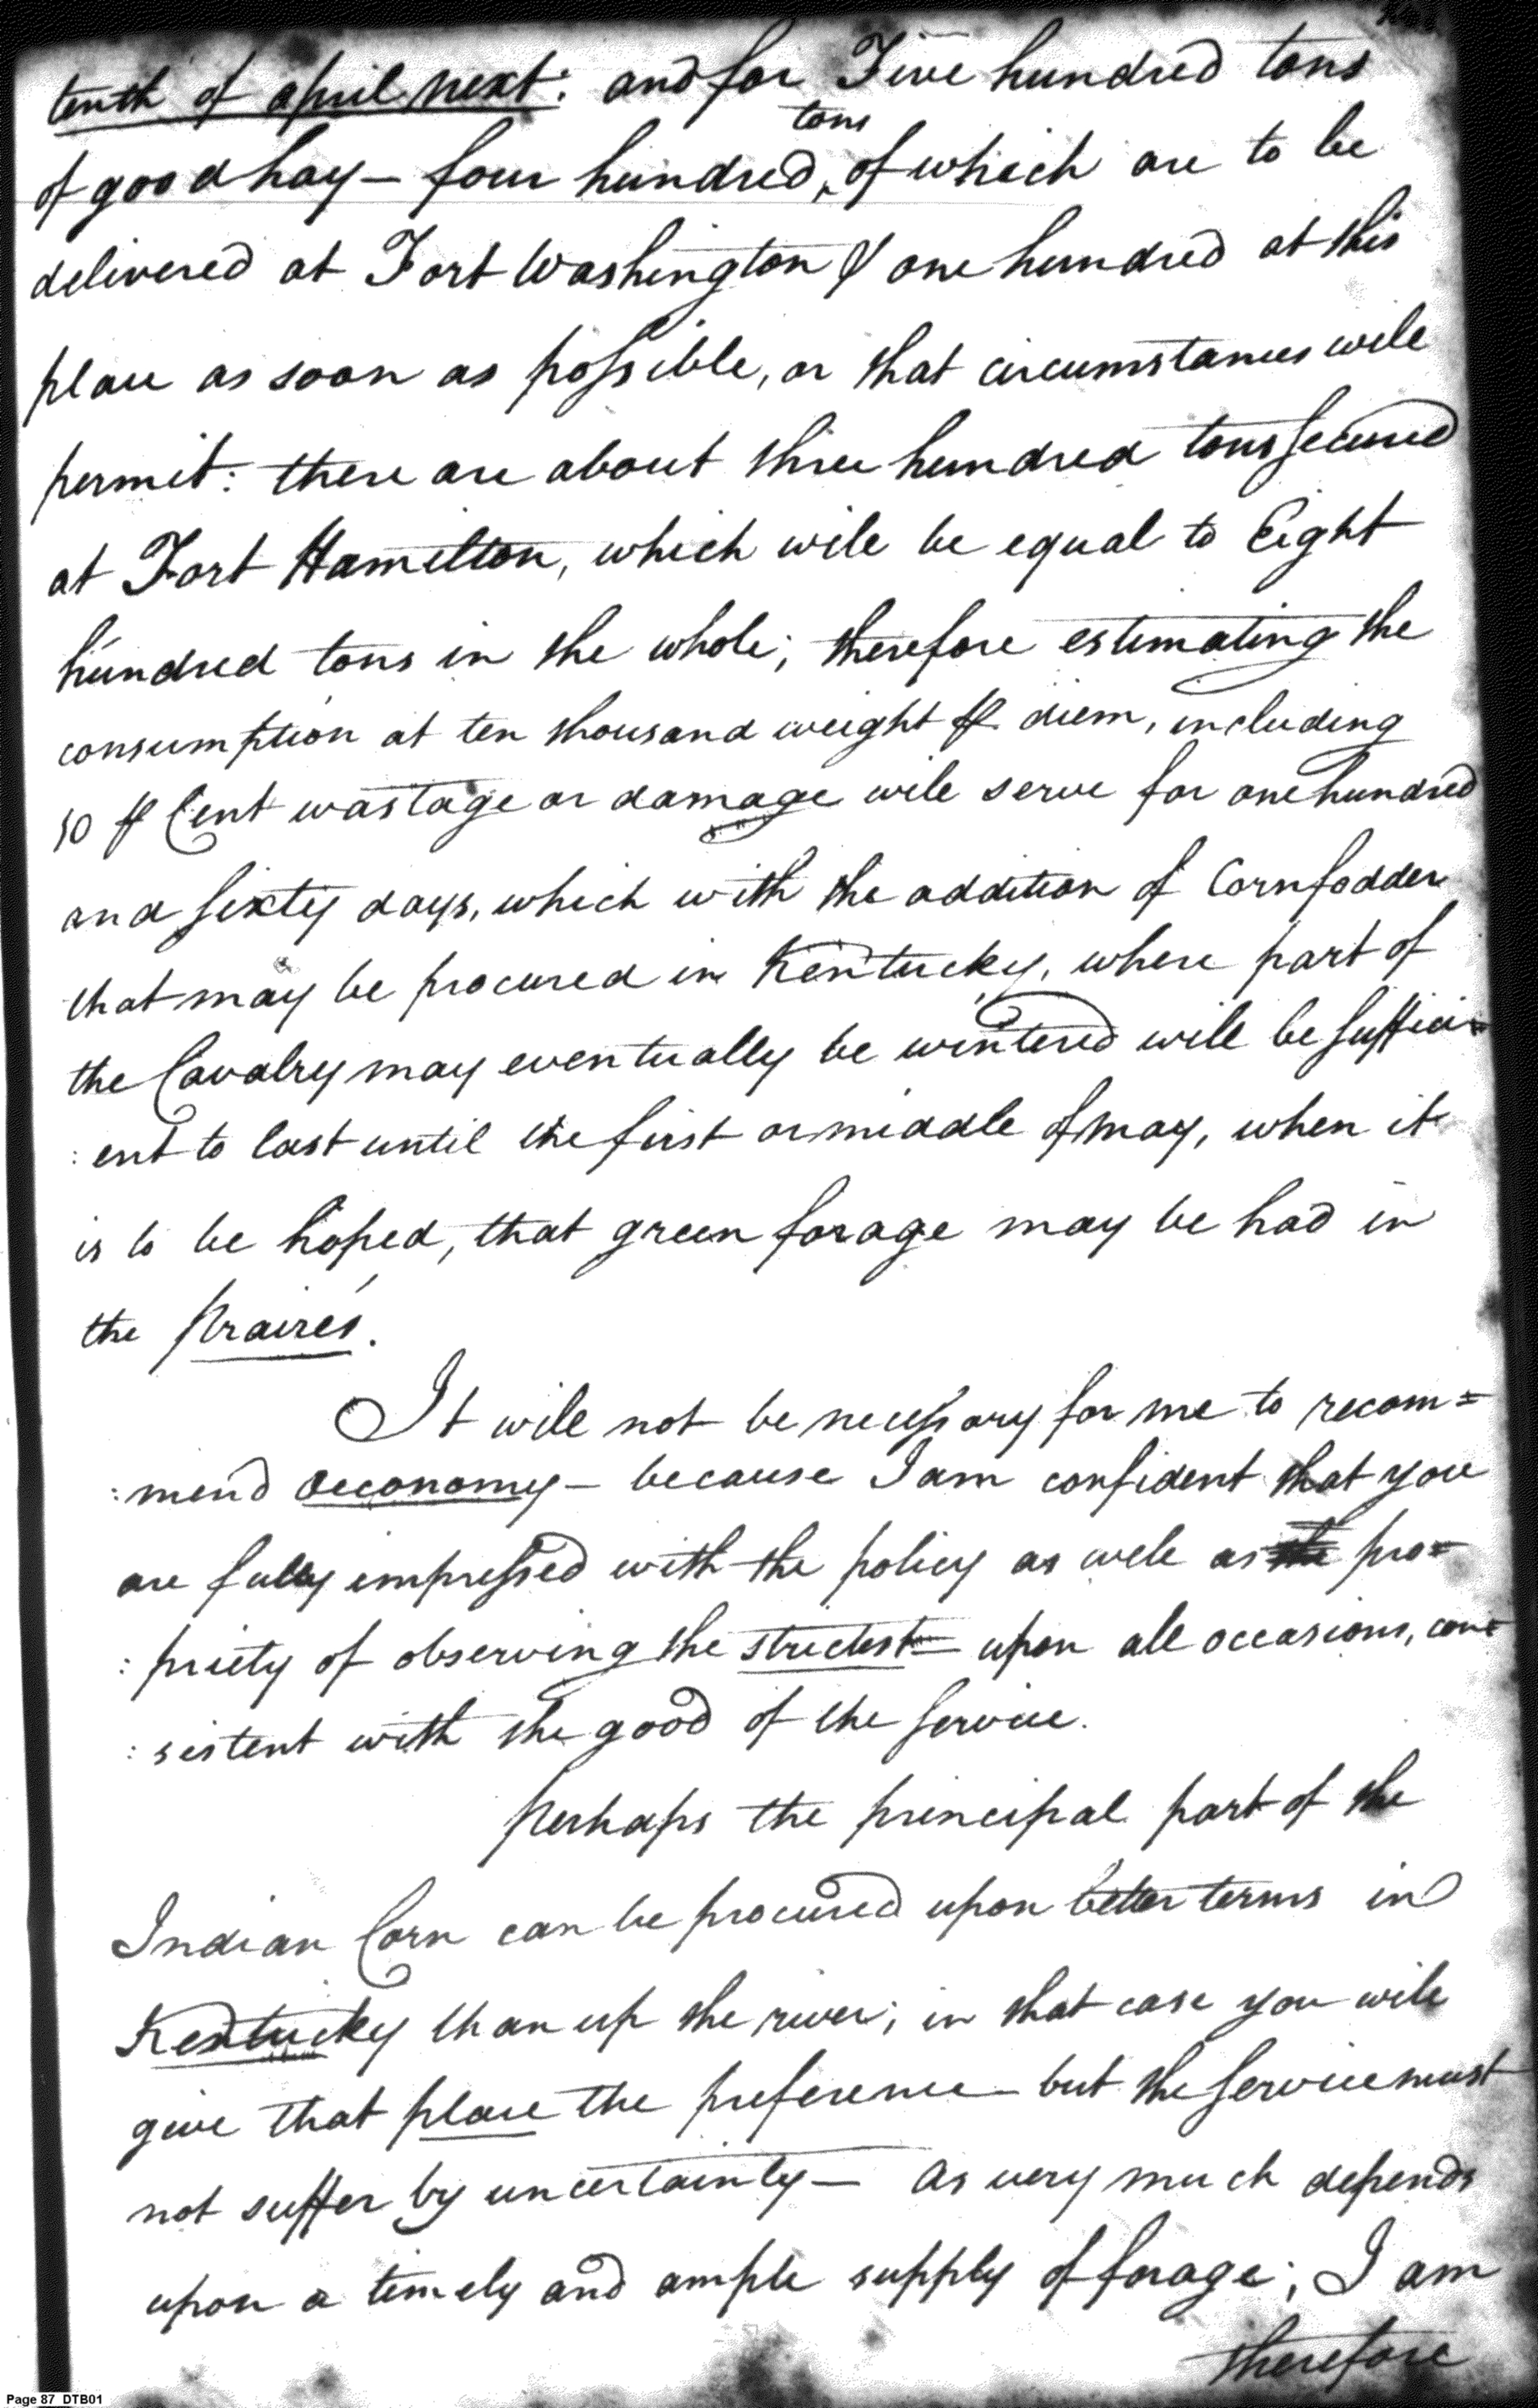 tenth of april next: and for Five hundred tons
tons
of good hay — four hundred, of which are to be
delivered at Fort Washington & one hundred at this
place as soon as possible, or that circumstances will
permit: there are about three hundred tons secured
at Fort Hamilton, which will be equal to Eight
hundred tons in the whole; therefore estimating the
consumption at ten thousand weight ⅌ diem, including
10 ⅌ Cent wastage or damage will serve for one hundred
and sixty days, which with the addition of Cornfodder
that may be procured in Kentucky, where part of
the Cavalry may eventually be wintered will be suffici=
:ent to last until the first or middle of may, when it
is to be hoped, that green forage may be had in
the Praires.
It will not be necessary for me to recom=
:mend Oeconomy — because I am confident that you
are fully impressed with the policy as well as the pro=
:priety of observing the strictest — upon all occasions, con=
:sistent with the good of the service.
Perhaps the principal part of the
Indian Corn can be procured upon better terms in
Kentucky than up the river; in that case you will
give that place the preference — but the service must
not suffer by uncertainty — as very much depends
upon a timely and ample supply of forage; I am
therefore
Page 87 DTB01